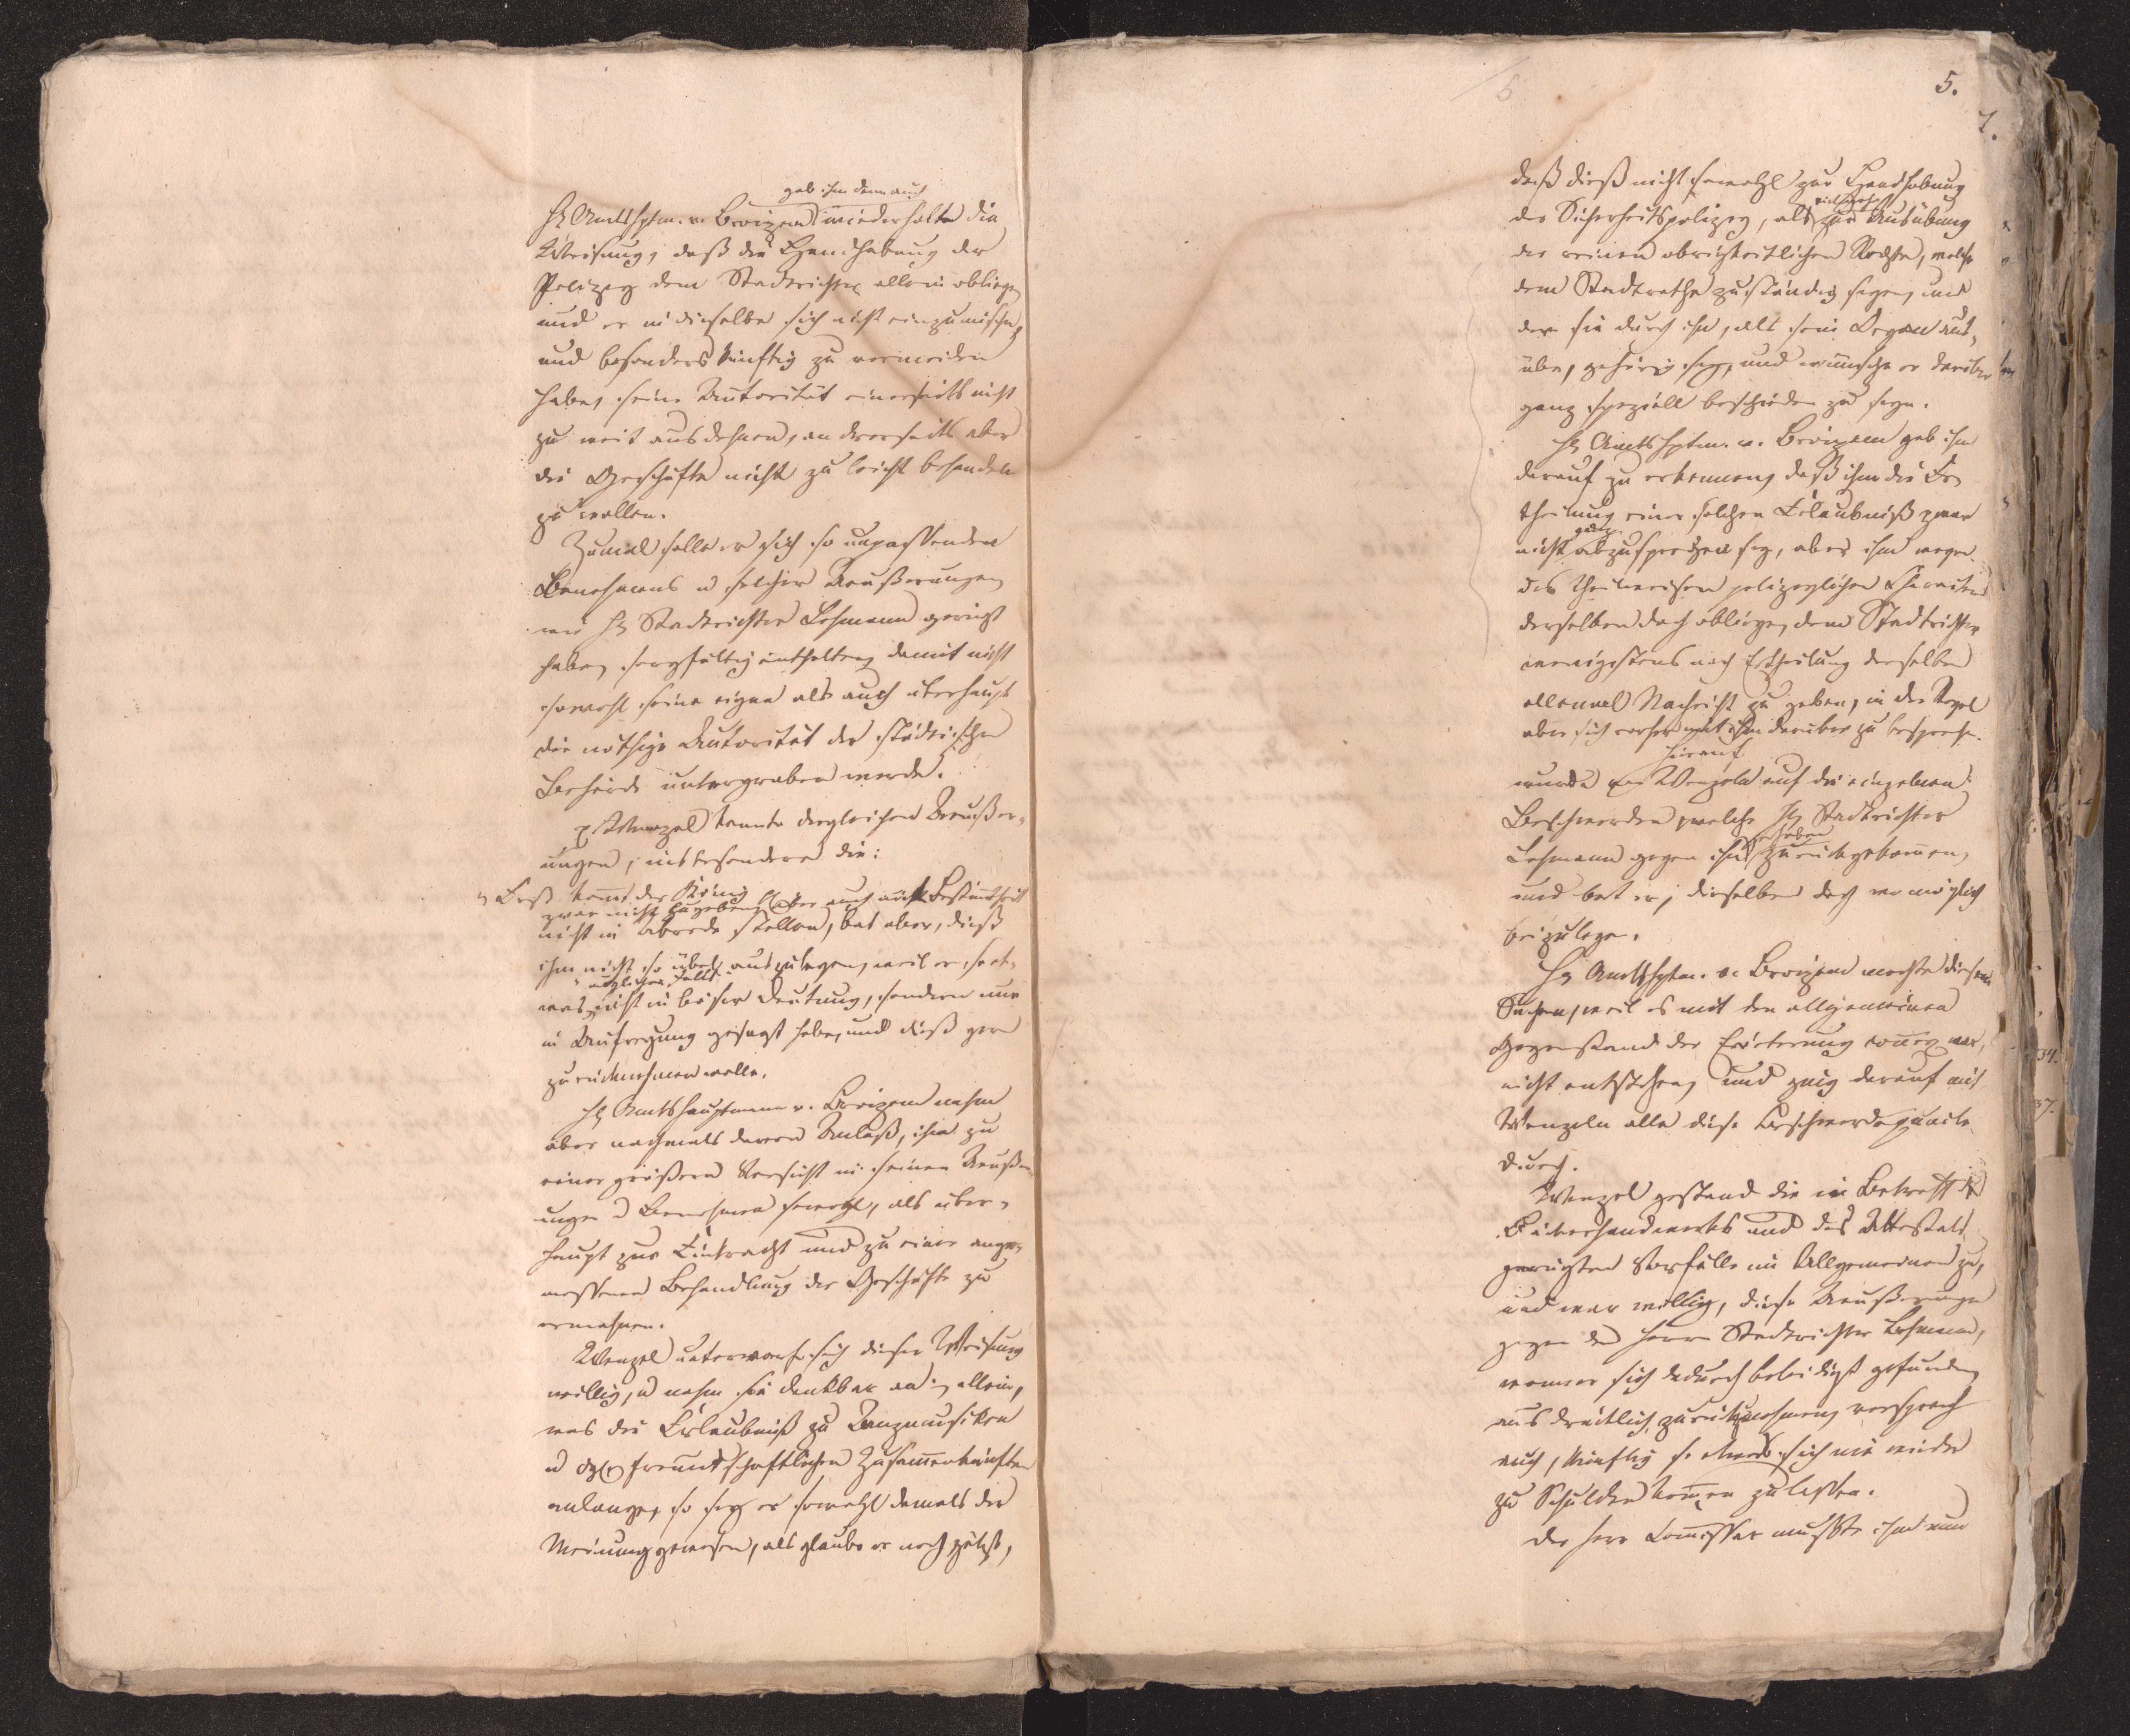 gab ihm denn auch
H. Amtshptm. v. Broizem wiederholte die
Weisung, daß die Handhabung der
Polizey dem Stadtrichter allein obliege
und er in dieselbe sich nicht einzumischen,
und besonders künftig zu vermeiden
habe, seine Autorität einerseits nicht
zu weit ausdehnen, andrerseits aber
die Geschäfte nicht zu leicht behandeln
zu wollen.
Zumal solle er sich so unpassenden
Benehmens u solcher Aeußerungen
wie H. Stadtrichter Lehmann gerügt
habe, sorgfältig enthalten, damit nicht
sowohl seine eigne als auch überhaupt
die nöthige Autorität der städtischen
Behörde untergraben werde.
Wenzel konnte dergleichen Aeußer-
ungen, insbesondere die:
Daß komt der König
zwar nicht zugeben, aber auch mit Bestimtheit
nicht in Abrede stellen, bat aber, dieß
ihm nicht so übel auszulegen, weil er so et-
möglichen Falls
was nicht in böser Deutung, sondern nur
in Aufregung gesagt habe, und dieß gern
zurücknehmen wolle.
H. Amtshauptmann v. Broizem nahm
aber nochmals davon Anlaß, ihn zu
einer größern Vorsicht in seinen Aeußer-
ungen u Benehmen sowohl, als über-
haupt zur Eintracht und zu einer ange-
messenen Behandlung der Geschäfte zu
ermahnen.
Wenzel unterwarf sich dieser Weisung
willig, u nahm sie dankbar an; allein,
was die Erlaubniß zu Tanzmusiken
u dgl. freundschaftlichen Zusamenkünften
anlange, so sey er sowohl damals der
Meinung gewesen, als glaube er noch jetzt,
5.
7.
daß dieß nicht sowohl zur Handhabung
vielmehr
der Sicherheitspolizey, als zur Ausübung
der reinen obrigkeitlichen Rechte, welche
dem Stadtrathe zuständig seyen, und
der sie durch ihn, als sein Organ aus-
übe, gehörig sey, und wünsche er darüber
ganz speziell beschieden zu seyn.
H. Amtshptm. v. Broizem gab ihm
darauf zu erkennen, daß ihm die Er-
theilung einer solchen Erlaubniß zwar
ganz
nicht abzusprechen sey, aber ihm wegen
des theilweisen polizeylichen Charakters
derselben doch obliege, dem Stadtrichter
wenigstens nach Ertheilung derselben
allemal Nachricht zu geben, in der Regel
aber sich vorher mit ihm darüber zu besprechen.
hierauf
wurde von Wenzeln auf die einzelnen
Beschwerden, welche H. Stadtrichter
erhoben
Lehmann gegen ihn zurückgekomen,
und bat er, dieselben doch wo möglich
beizulegen.
H. Amtshptm. v. Broizem mochte diesem
Suchen, weil es mit den allgemeinen
Gegenstand der Erörterung war,
nicht entstehen, und ging darauf mit
Wenzeln alle diese Beschwerdepuncte
durch.
Wenzel gestand die in Betreff des
Bäckerhandwerks und des Attestats
gerügten Vorfälle im Allgemeinen zu,
und war willig, diese Aeußerungen
gegen den Herrn Stadtrichter Lehmann,
wenn er sich dadurch beleidigt gefunden,
ausdrücklich zurückzunehmen, versprach
auch, künftig so etwas sich nie wieder
zu Schulden komen zu lassen.
Der Herr Comissar mußte ihm nun